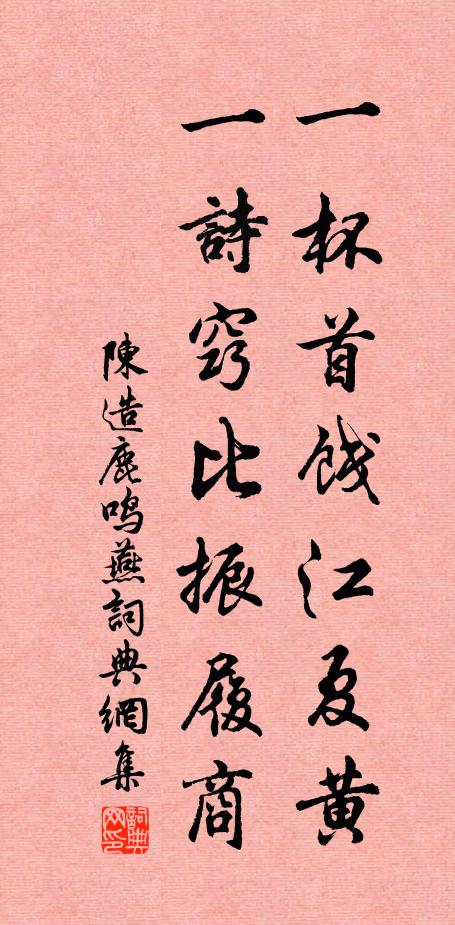 一杯首餞江夏黄
一詩窃比振履商
陳造鹿鳴燕詞典網集
詞典网印